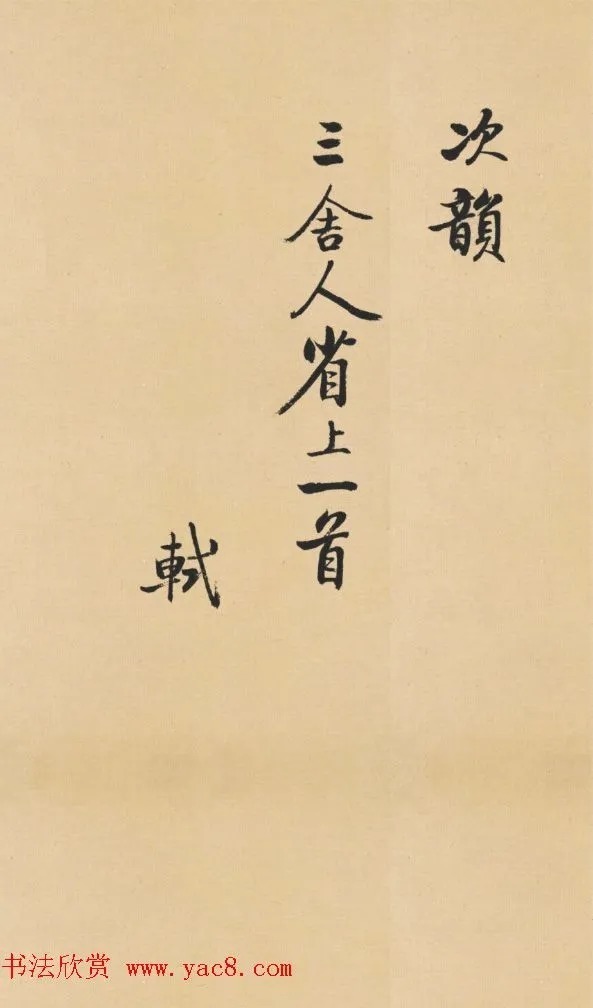 次韻
三舍人省上一首
軾
书法欣赏 www.yac8.com